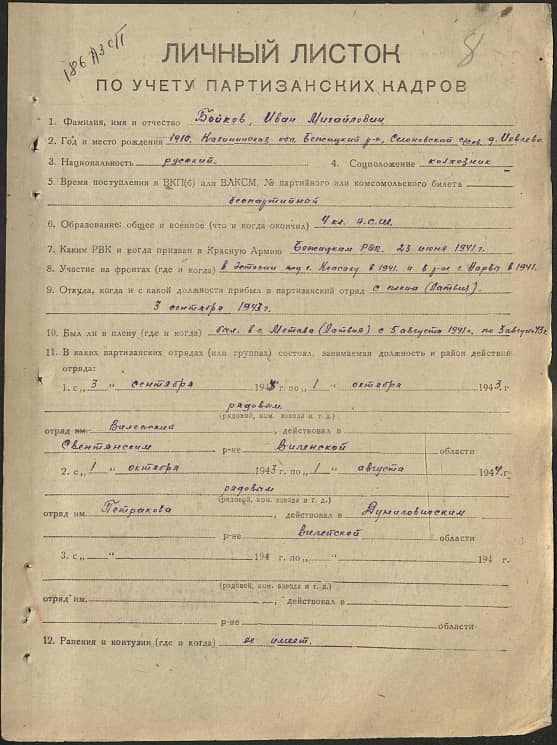 186 АЗСП
8
ЛИЧНЫЙ ЛИСТОК
ПО УЧЕТУ ПАРТИЗАНСКИХ КАДРОВ
1. Фамилия, имя и отчество Бойков, Иван Михайлович
2. Год и место рождения 1910, Калининская обл. Бежецкий р-о,
3. Национальность русский. 4. Соцположение колхозник
5. Время поступления в ВКП(б) или ВЛКСМ, № партийного или комсомольского билета
беспартийной
6. Образование: общее и военное (что и когда окончил) 4 кл. н.с.ш.
7. Каким РВК и когда призван в Красную Армию Бежецким РВК. 23 июня 1941 г.
8. Участие на фронтах (где и когда) в 1941. и в р-не г. Нарвы в 1941.
9. Откуда, когда и с какой должности прибыл в партизанский отряд с плена (Латвия).
3 сентября 1943 г.
10. Был ли в плену (где и когда) был. в г. Метава (Латвия) с 5 августа 1941 г. по 3 август 43 г.
11. В каких партизанских отрядах (или группах) состоял, занимаемая должность и район действий
отряда:
1. с „ 3 “ сентября 1943 г. по „ 1 “ октября 1943 г
рядовым
(рядовой, ком. взвода и т. д.)
отряд им. Виленский, действовал в
Свентянским р-не Виленской области
2. с „ 1 “ октября 1943 г. по „ 1 “ августа 1944 г.
рядовым
(рядовой, ком. взвода и т. д.)
отряд им. Петракова, действовал в Дуниловичским
р-не Вилейской области
3. с „ “ 194 г. по „ “ 194 г.
(рядовой, ком. взвода и т. д.)
отряд им. , действовал в
р-не области
12. Ранения и контузии (где и когда) не имеет.